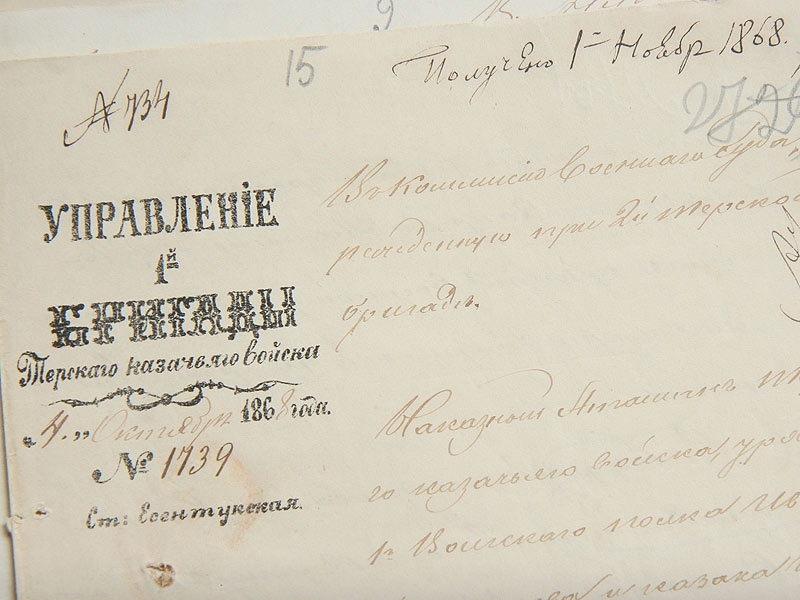 9
15
Получено 1го Ноябр 1868.
№ 734
2726
УПРАВЛЕНІЕ
1й
БРИГАДЫ
Терскаго казачьяго войска
„4.” Октября 1868 года.
№ 1739
Ст: Есентукская.
Въ Коммисію Военнаго Суда, 
режденную при 2й Терской
бригадѣ.
Наказный Атаманъ
го казачьяго войска, уря
1го Волгскаго полка
и казака